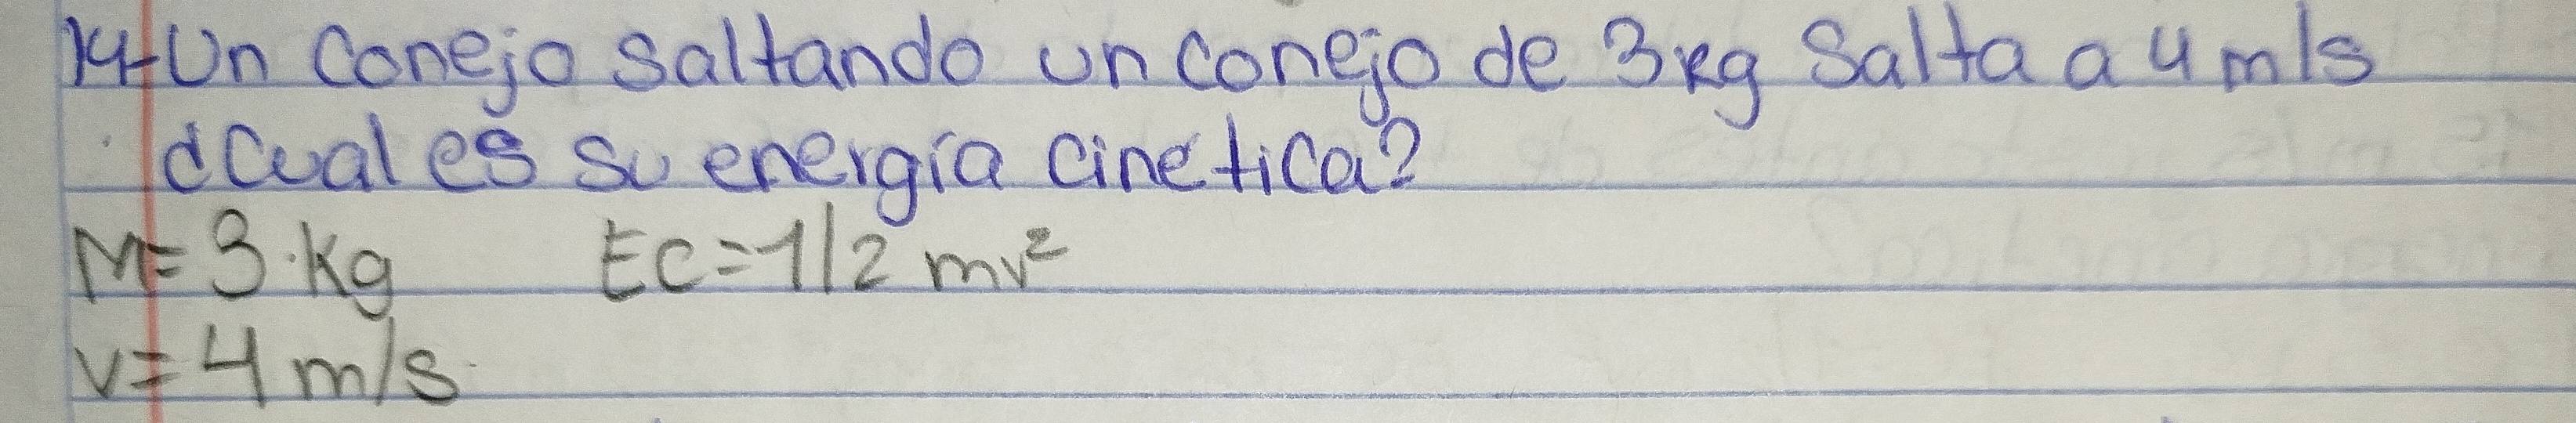 14-Un Conejo Saltando un conejo de 3kg Salta a 4 m/s
¿Cual es su energía cinetica?
M= 3 Kg EC=1/2 mv²
v= 4 m/s